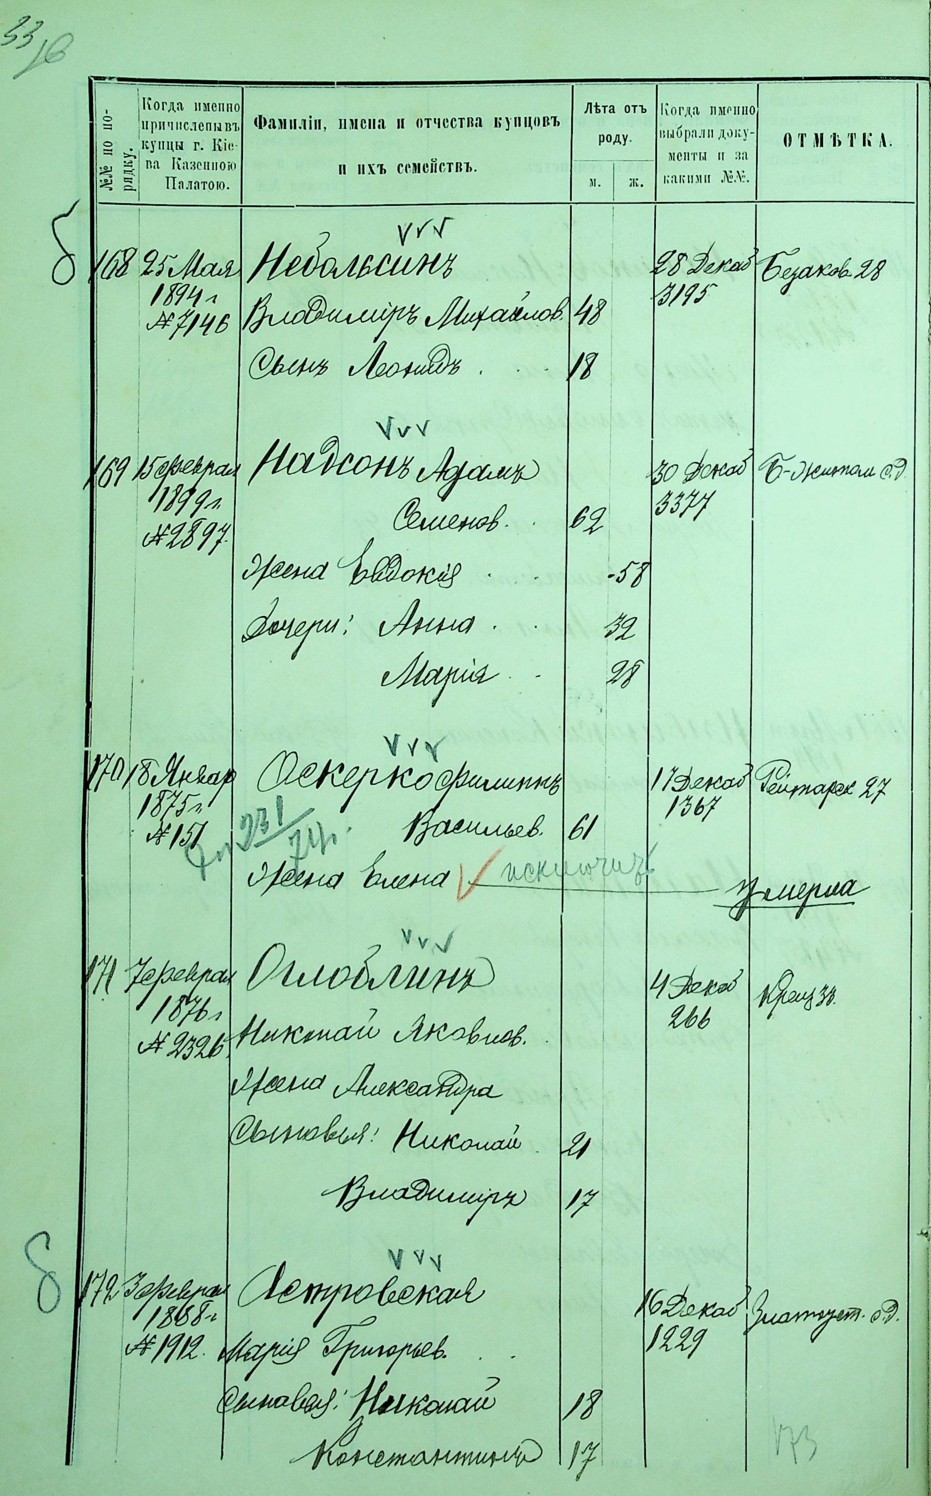 33
№№ по по-
рядку.
Когда именно
причислены въ
купцы г. Кіе-
ва Казенною
Палатою.
Фамиліи, имена и отчества купцовъ
и ихъ семействъ.
Лѣта отъ
роду.
м. ж.
Когда именно
выбрали доку-
менты и за
какими №№.
ОТМѢТКА.
168 25 Мая Небольсинъ 28 Декаб Безаков 28
1894 г 3195
№ 7146 Владиміръ Михайлов. 48
Сынъ Леонидъ 18
169 15 феврал Надсонъ Адамъ 30 Декаб Б-Житом с.д.
1899 г. 3377
Семенов. 62
№ 2897.
Жена Евдокія 58
Дочери: Анна 32
Марія 28
170 18 Январ Оскерко Филиппъ 17 Декаб Рейтарск 27
1875 г. 1367
№ 151 231 Васильев. 61
Жена Елена исключить умерла
171 7 феврал Оглоблинъ 4 Декаб Крещ 33.
1876 г 266
№ 2326 Николай Яковлев.
Жена Александра
Сыновья: Николай 21
Владиміръ 17
б
172 3 феврал Островская 16 Декаб Златоуст. с.д.
1868 г 1229
№ 1912. Марія Григорьев.
Сыновья: Николай 18
Константинъ 17
173